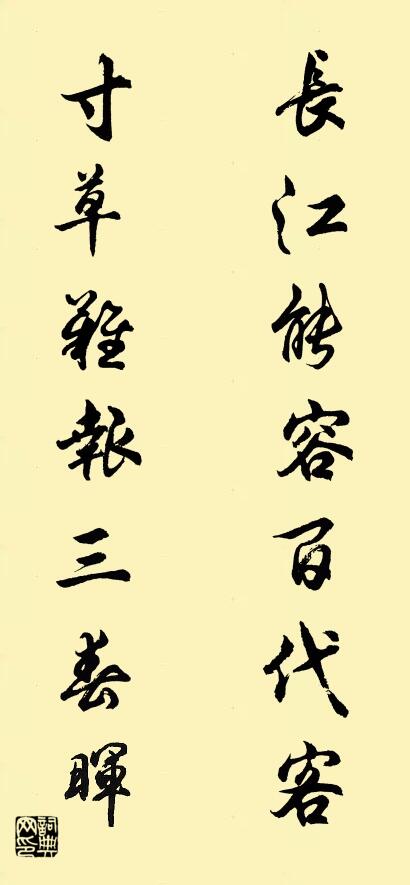 長江能容百代客
寸草難報三春暉
詞典网印